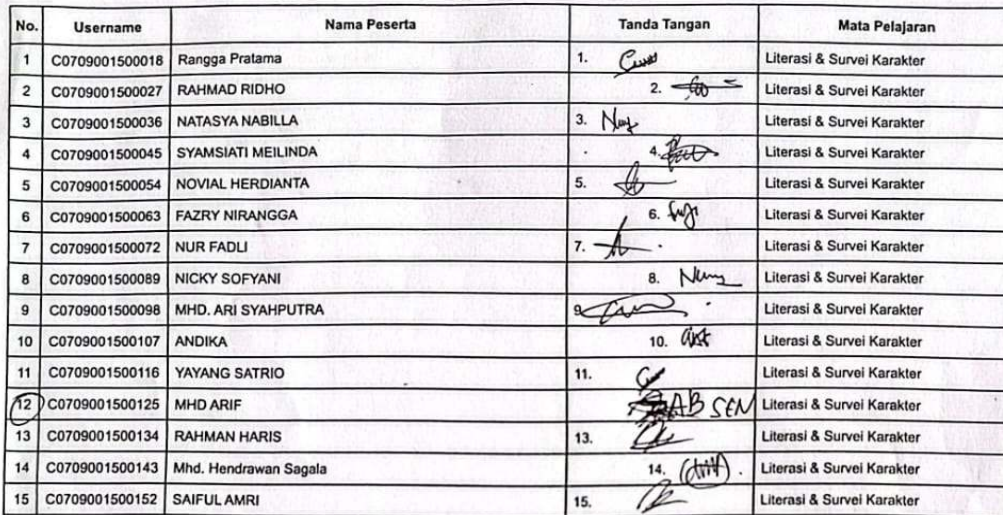 No. Username Nama Peserta Tanda Tangan Mata Pelajaran
1 C0709001500018 Rangga Pratama 1. Literasi & Survei Karakter
2 C0709001500027 RAHMAD RIDHO 2. Literasi & Survei Karakter
3 C0709001500036 NATASYA NABILLA 3. Literasi & Survei Karakter
4 C0709001500045 SYAMSIATI MEILINDA 4. Literasi & Survei Karakter
5 C0709001500054 NOVIAL HERDIANTA 5. Literasi & Survei Karakter
6 C0709001500063 FAZRY NIRANGGA 6. Literasi & Survei Karakter
7 C0709001500072 NUR FADLI 7. Literasi & Survei Karakter
8 C0709001500089 NICKY SOFYANI 8. Literasi & Survei Karakter
9 C0709001500098 MHD. ARI SYAHPUTRA 9. Literasi & Survei Karakter
10 C0709001500107 ANDIKA 10. Literasi & Survei Karakter
11 C0709001500116 YAYANG SATRIO 11. Literasi & Survei Karakter
12 C0709001500125 MHD ARIF ABSEN Literasi & Survei Karakter
13 C0709001500134 RAHMAN HARIS 13. Literasi & Survei Karakter
14 C0709001500143 Mhd. Hendrawan Sagala 14. Literasi & Survei Karakter
15 C0709001500152 SAIFUL AMRI 15. Literasi & Survei Karakter